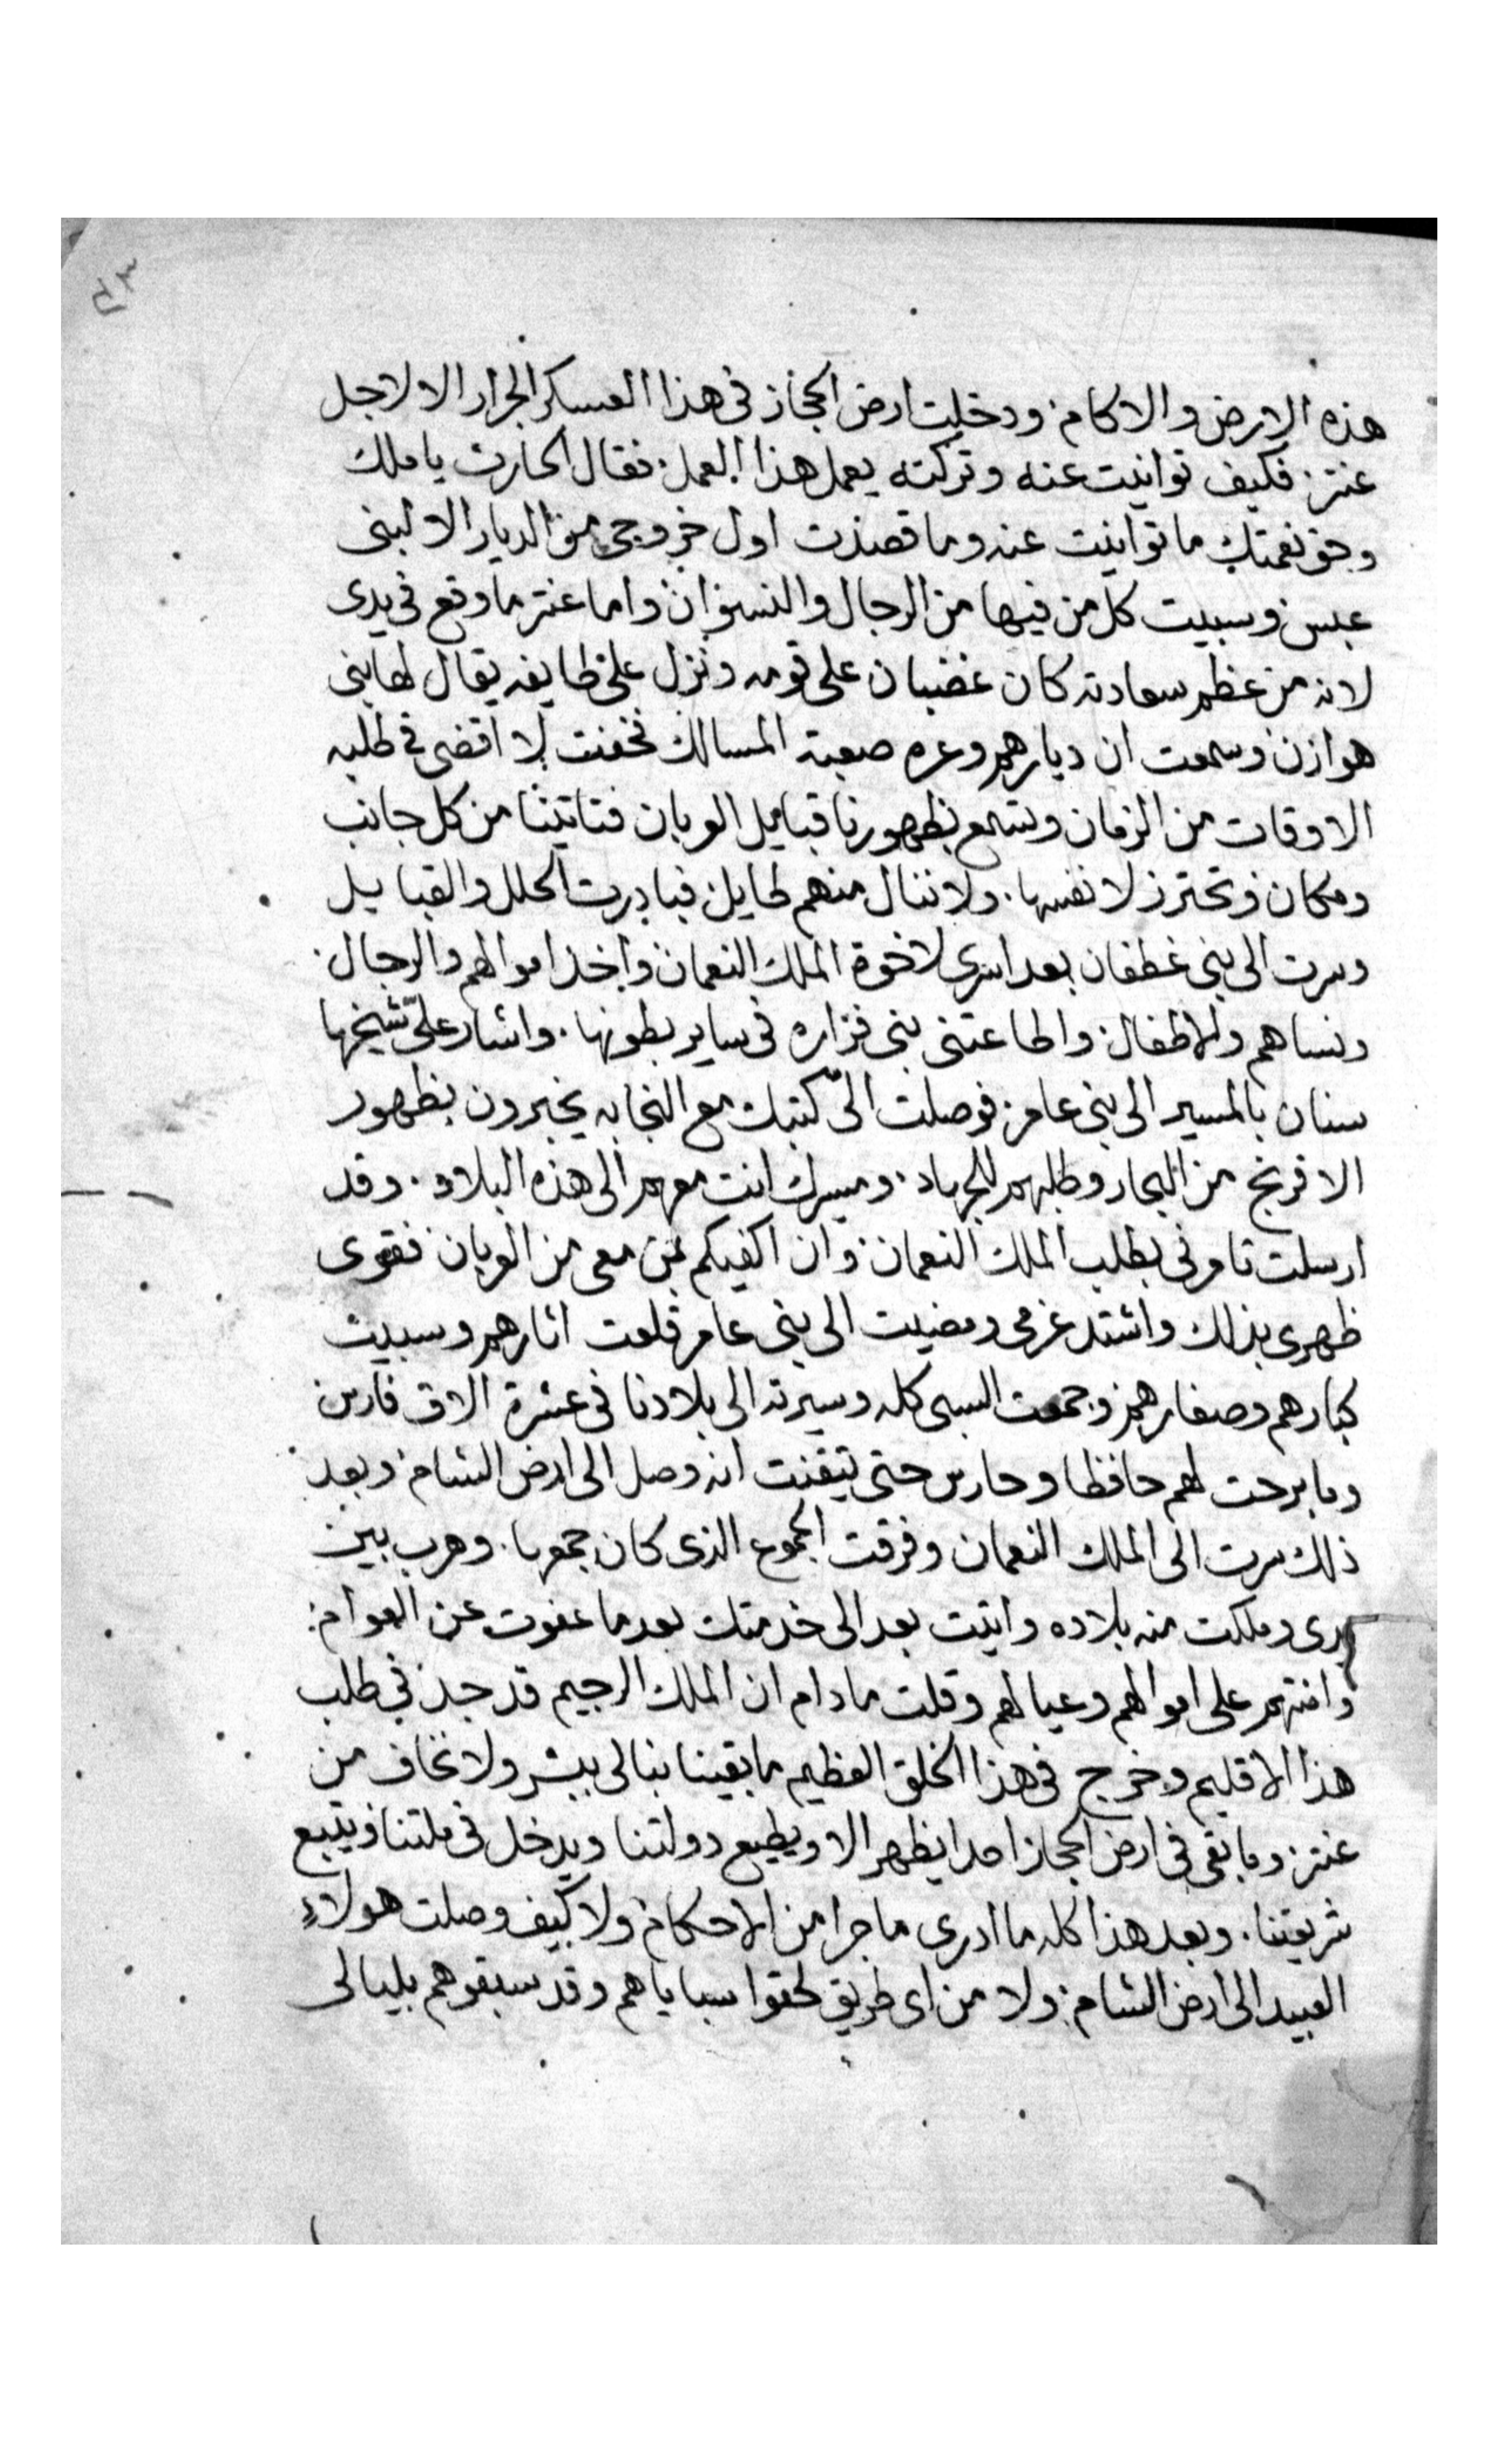 هذه الارض والاكام. ودخلت ارض الحجاز فى هذا العسكر الجرار الا لاجل
عنتر. فكيف توانيت عنه وتركته يعمل هذا العمل. فقال الحارث يا ملك
وحق نعمتك ما توانيت عنه وما قصدت اول خروجى من الديار الا لبنى
عبس وسبيت كل من فيها من الرجال والنسوان واما عنتر ما وقع فى يدى
لانه من عظم سعادته كان غضبان على قومه ونزل على طايفه يقال لها بنى
هوازن وسمعت ان ديارهم وعره صعبة المسالك فخفت لا اقضى فى طلبه
الاوقات من الزمان وتسمع بظهورنا قبايل العربان فتاتينا من كل جانب
ومكان وتحترز لانفسها. ولا ننال منهم طايل فبادرت الحلل والقبايل
وسرت الى بنى غطفان بعد اسرى لاخوة الملك النعمان واخذ اموالهم والرجال.
ونساهم والاطفال. واطاعتنى بنى فزاره فى ساير بطونها. واشار علىّ شيخها
سنان بالمسير الى بنى عامر فوصلت الىّ كتبك مع النجابه يخبرون بظهور
الافرنج من البحار وطلبهم للجهاد. ومسيرك انت معهم الى هذه البلاد. وقد
ارسلت تامرنى بطلب الملك النعمان. وان اكفيكم بمن معى من العربان فقوى
ظهرى بذلك واشتد عزمى ومضيت الى بنى عامر قلعت اثارهم وسبيت
كبارهم وصغارهم وجمعت السبى كله وسيرته الى بلادنا فى عشرة الاف فارس
وما برحت لهم حافظا وحارس حتى تيقنت انه وصل الى ارض الشام وبعد
ذلك سرت الى الملك النعمان وفرقت الجموع الذى كان جمعها. وهرب بين
يدى وملكت منه بلاده واتيت بعد الى خدمتك بعد ما عفوت عن العوام.
وامنتهم على اموالهم وعيالهم وقلت ما دام ان الملك الرجيم قد جد فى طلب
هذا الاقليم وخرج فى هذا الخلق العظيم ما بقينا نبالى ببشر ولا نخاف من
عنتر. وما بقى فى ارض الحجاز احدا يظهر الا ويطيع دولتنا ويدخل فى ملتنا ويتبع
شريعتنا. وبعد هذا كله ما ادرى ما جرا من الاحكام ولا كيف وصلت هولاء
العبيد الى ارض الشام. ولا من اى طريق لحقوا سباياهم وقد سبقوهم بليالى